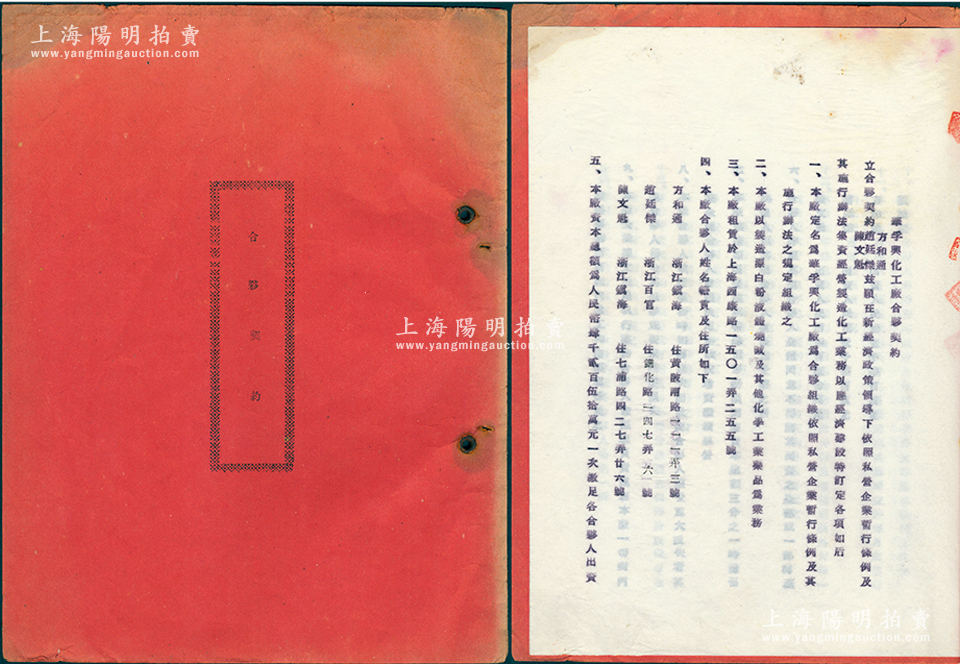 上海陽明拍賣
www.yangmingauction.com
合夥契約
上海陽明拍賣
www.yangmingauction.com
華孚興化工廠合夥契約
方和通
立合夥契約趙廷傑茲願在新經濟政策領導下依照私營企業暫行條例及
陳文魁
其施行辦法集資經營製造化工業務以應經濟建設特訂定各項如后
一、本廠定名爲華孚興化工廠爲合夥組織依照私營企業暫行條例及其
施行辦法之規定組織之
二、本廠以製造漂白粉及其他化學工業藥品爲業務
三、本廠租賃於上海西康路一五〇一弄二五五號
四、本廠合夥人姓名籍貫及住所如下
方和通 浙江鎮海 住黃陂南路弄三號
趙廷傑 浙江百官 住進化路一四七弄號
陳文魁 浙江鎮海 住七浦路四二七弄廿六號
五、本廠資本總額爲人民幣肆千貳百伍拾萬元一次繳足各合夥人出資
上海陽明拍賣
www.yangmingauction.com